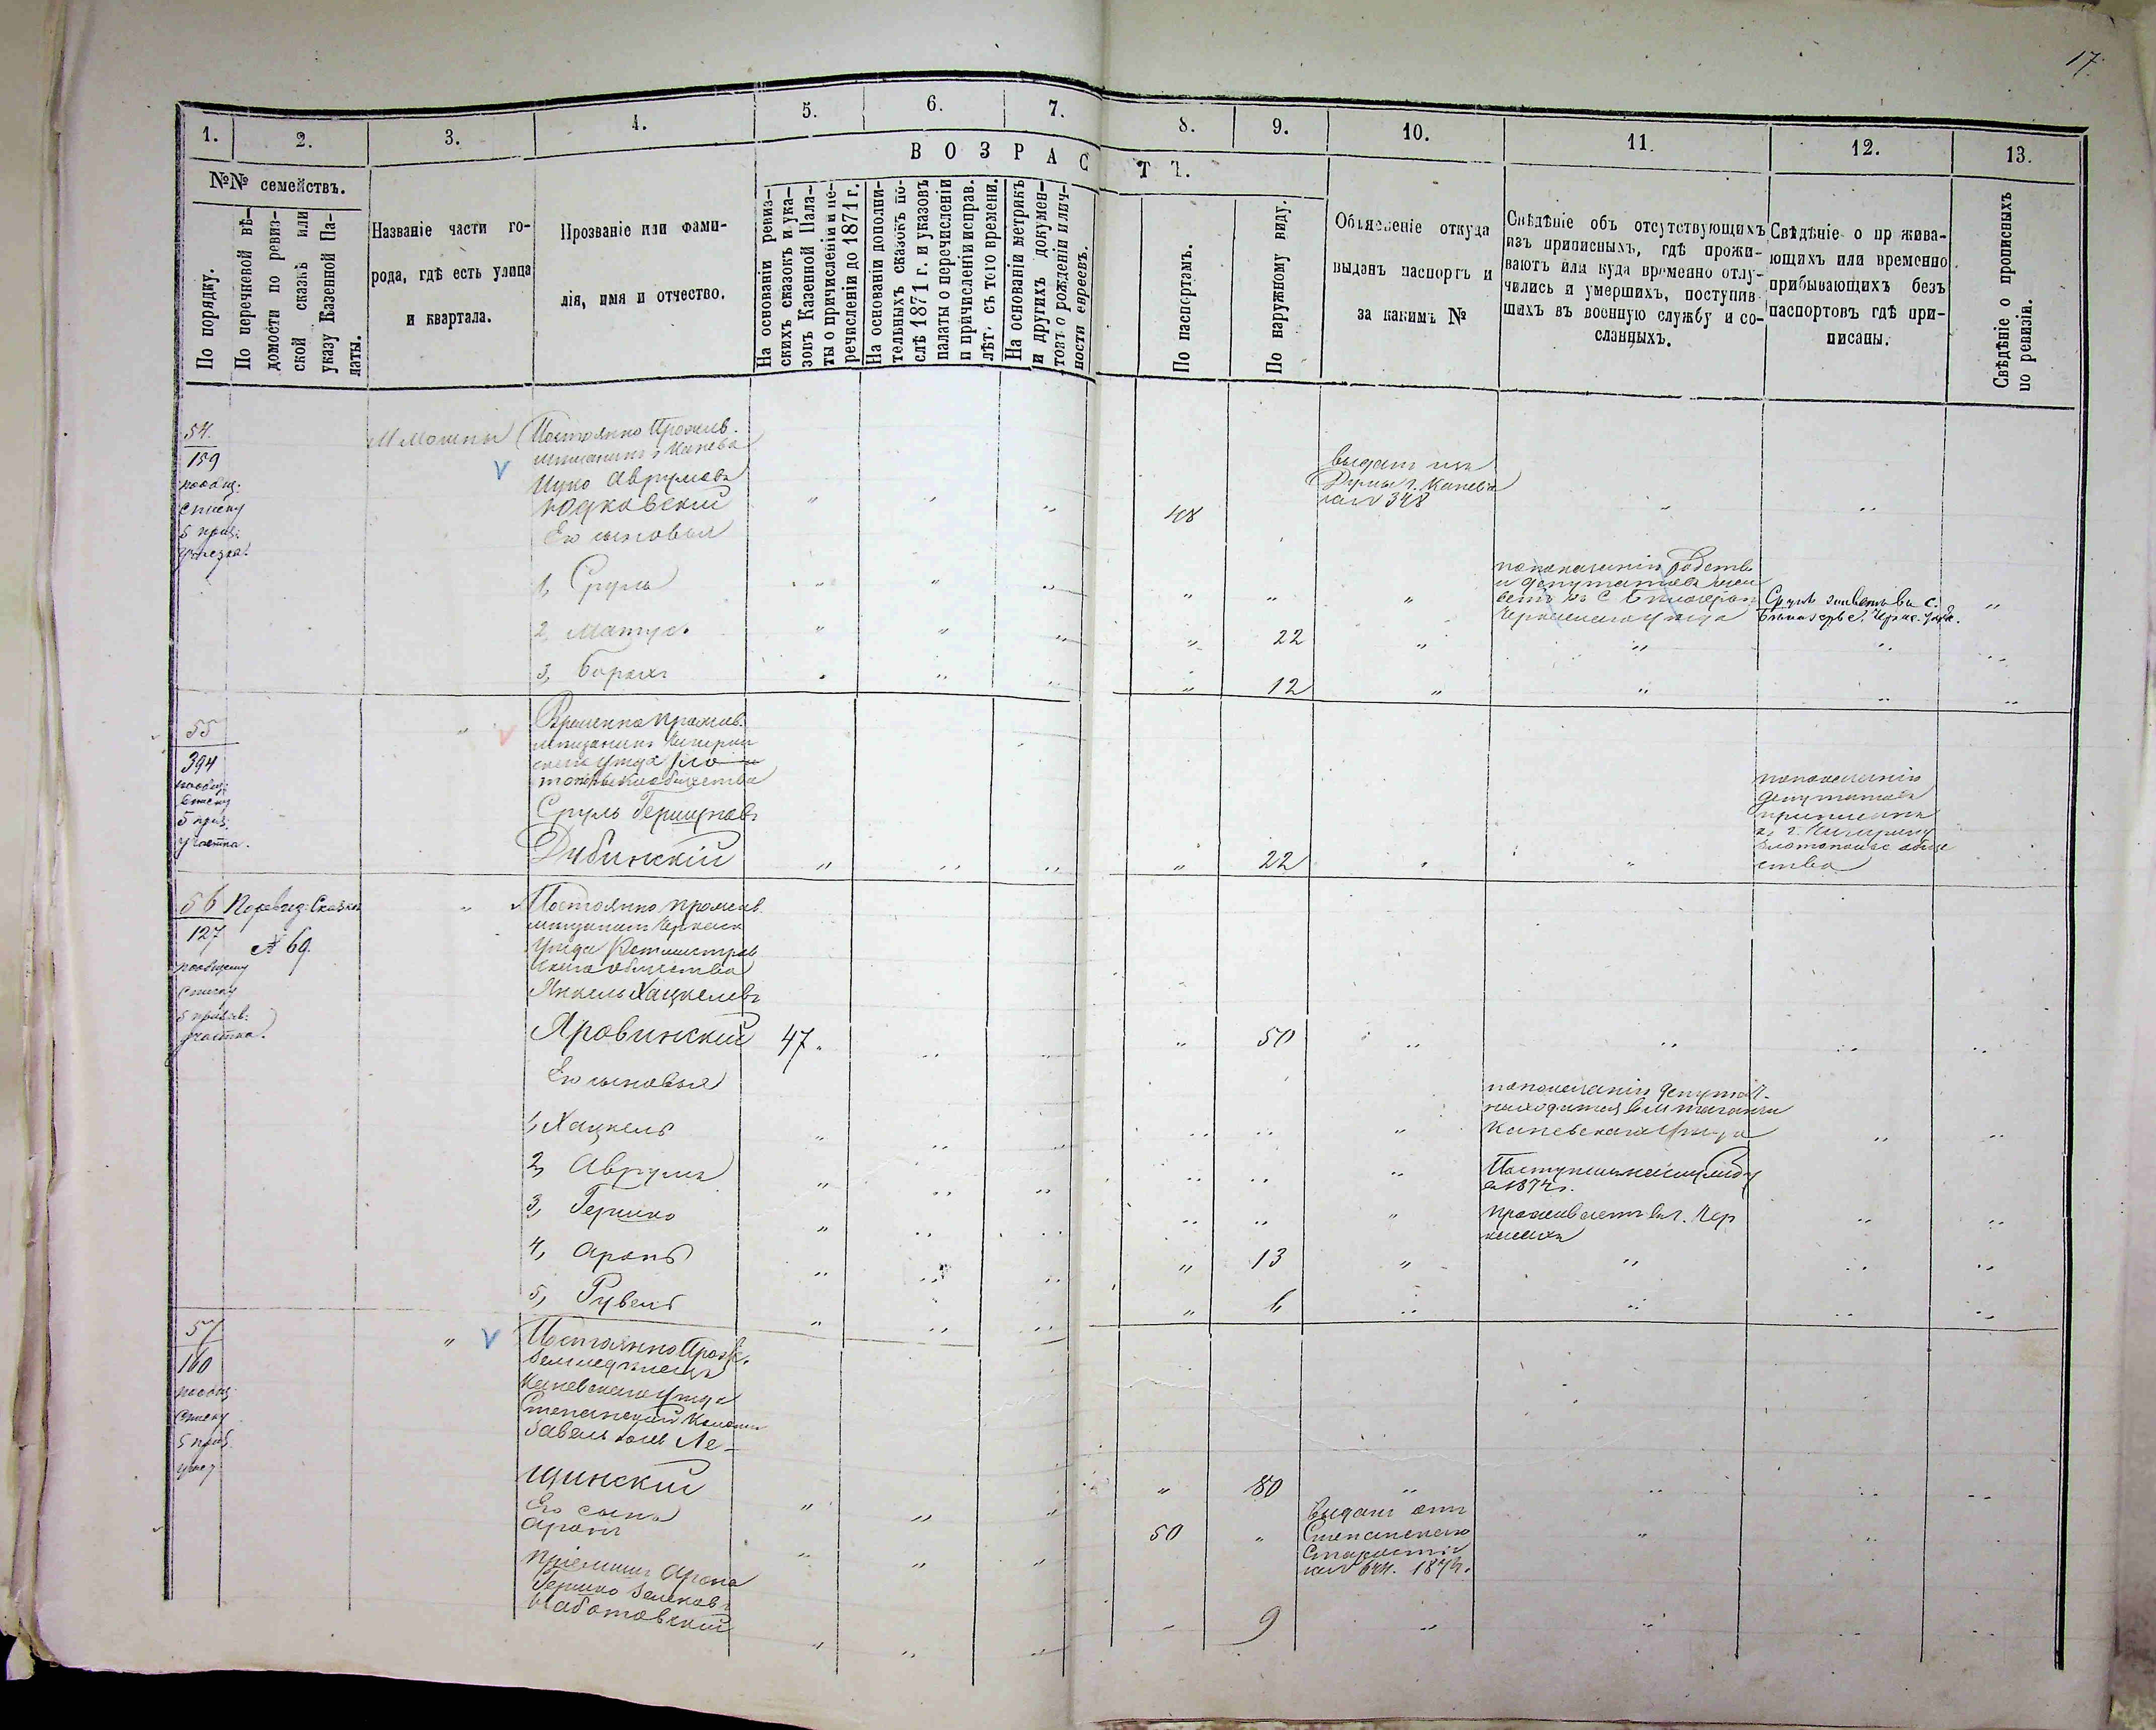 17
1.
2.
3.
4.
5.
6.
7.
8.
9.
10.
11.
12.
13.
№№ семействъ.
По порядку.
По перечневой вѣ-
домости по ревиз-
ской сказкѣ или
указу Казенной Па-
латы.
Названіе части го-
рода, гдѣ есть улица
и квартала.
Прозваніе или фами-
лія, имя и отчество.
ВОЗРАСТЪ.
На основаніи ревиз-
скихъ сказокъ и ука-
зовъ Казенной Пала-
ты о причисленіи и пе-
речисленіи до 1871 г.
На основаніи дополни-
тельныхъ сказокъ по-
слѣ 1871 г. и указовъ
палаты о перечисленіи
и причисленіи исправ.
лѣтъ съ того времени.
На основаніи метрикъ
и другихъ докумен-
товъ о рожденіи и лич-
ности евреевъ.
По паспортамъ.
По наружному виду.
Объясненіе откуда
выданъ паспортъ и
за какимъ №
Свѣдѣніе объ отсутствующихъ
изъ приписныхъ, гдѣ прожи-
ваютъ или куда временно отлу-
чились и умершихъ, поступив
шихъ въ военную службу и со-
сланныхъ.
Свѣдѣніе о прожива-
ющихъ или временно
прибывающихъ безъ
паспортовъ гдѣ при-
писаны.
Свѣдѣніе о прописныхъ
по ревизіи.
54.
159
пообщ.
списку
5 приз.
участка.
М Мошны
Постоянно Прожив.
мѣщанинъ г Канева
Ицко Аврумовъ
Юдковскій
48
выданъ изъ
Думы г. Канева
за № 348
Его сыновья
1, Сруль
по показанію родств
и депутатовъ жи
ветъ въ с Бѣлозерьи
Черкасскаго уѣзда
Сруль живетъ въ с.
Бѣлозерьѣ, Черкас. уѣзда.
2, Матус.
22
3, Борохъ
12
55
394
пообщ.
списку
5 приз.
участка.
Временно прожив.
мѣщанинъ Чигирин
скаго уѣзда Зло
топольск общества
Сруль Гершуновъ
Дубинскій
22
по показанію
депутатовъ
приписанъ
къ г. Чигирину
Златополье обще
ства
56
127
пообщему
списку
5 призыв.
участка.
По ревиз. Сказкѣ
№ 69.
Постоянно прожив.
мѣщанинъ Черкасск
уѣзда Ротмистров
скаго общества
Янкель Хацкелевъ
Яровинскій
47.
50
Его сыновья
1, Хацкель
по показанію депутат.
находится въ м таганчи
Каневскаго уѣзда
2, Аврумъ
Поступилъ на службу
въ 1874 г.
3, Гершко
проживаетъ въ г. Чер
кассахъ
4, Аронъ
13
5, Рувенъ
6
57
160
пообщ.
списку
5 приз.
учас.
Постоянно Прож.
Земледѣлецъ
Каневскаго уѣзда
Степанской колоніи
Завель Ле-
щинскій
80
Его сынъ
Аронъ
50
Выданъ отъ
Степанскаго
Старосты
за № 644. 1874.
Пріемышъ Арона
Гершко Зелековъ
Наботовскій
9